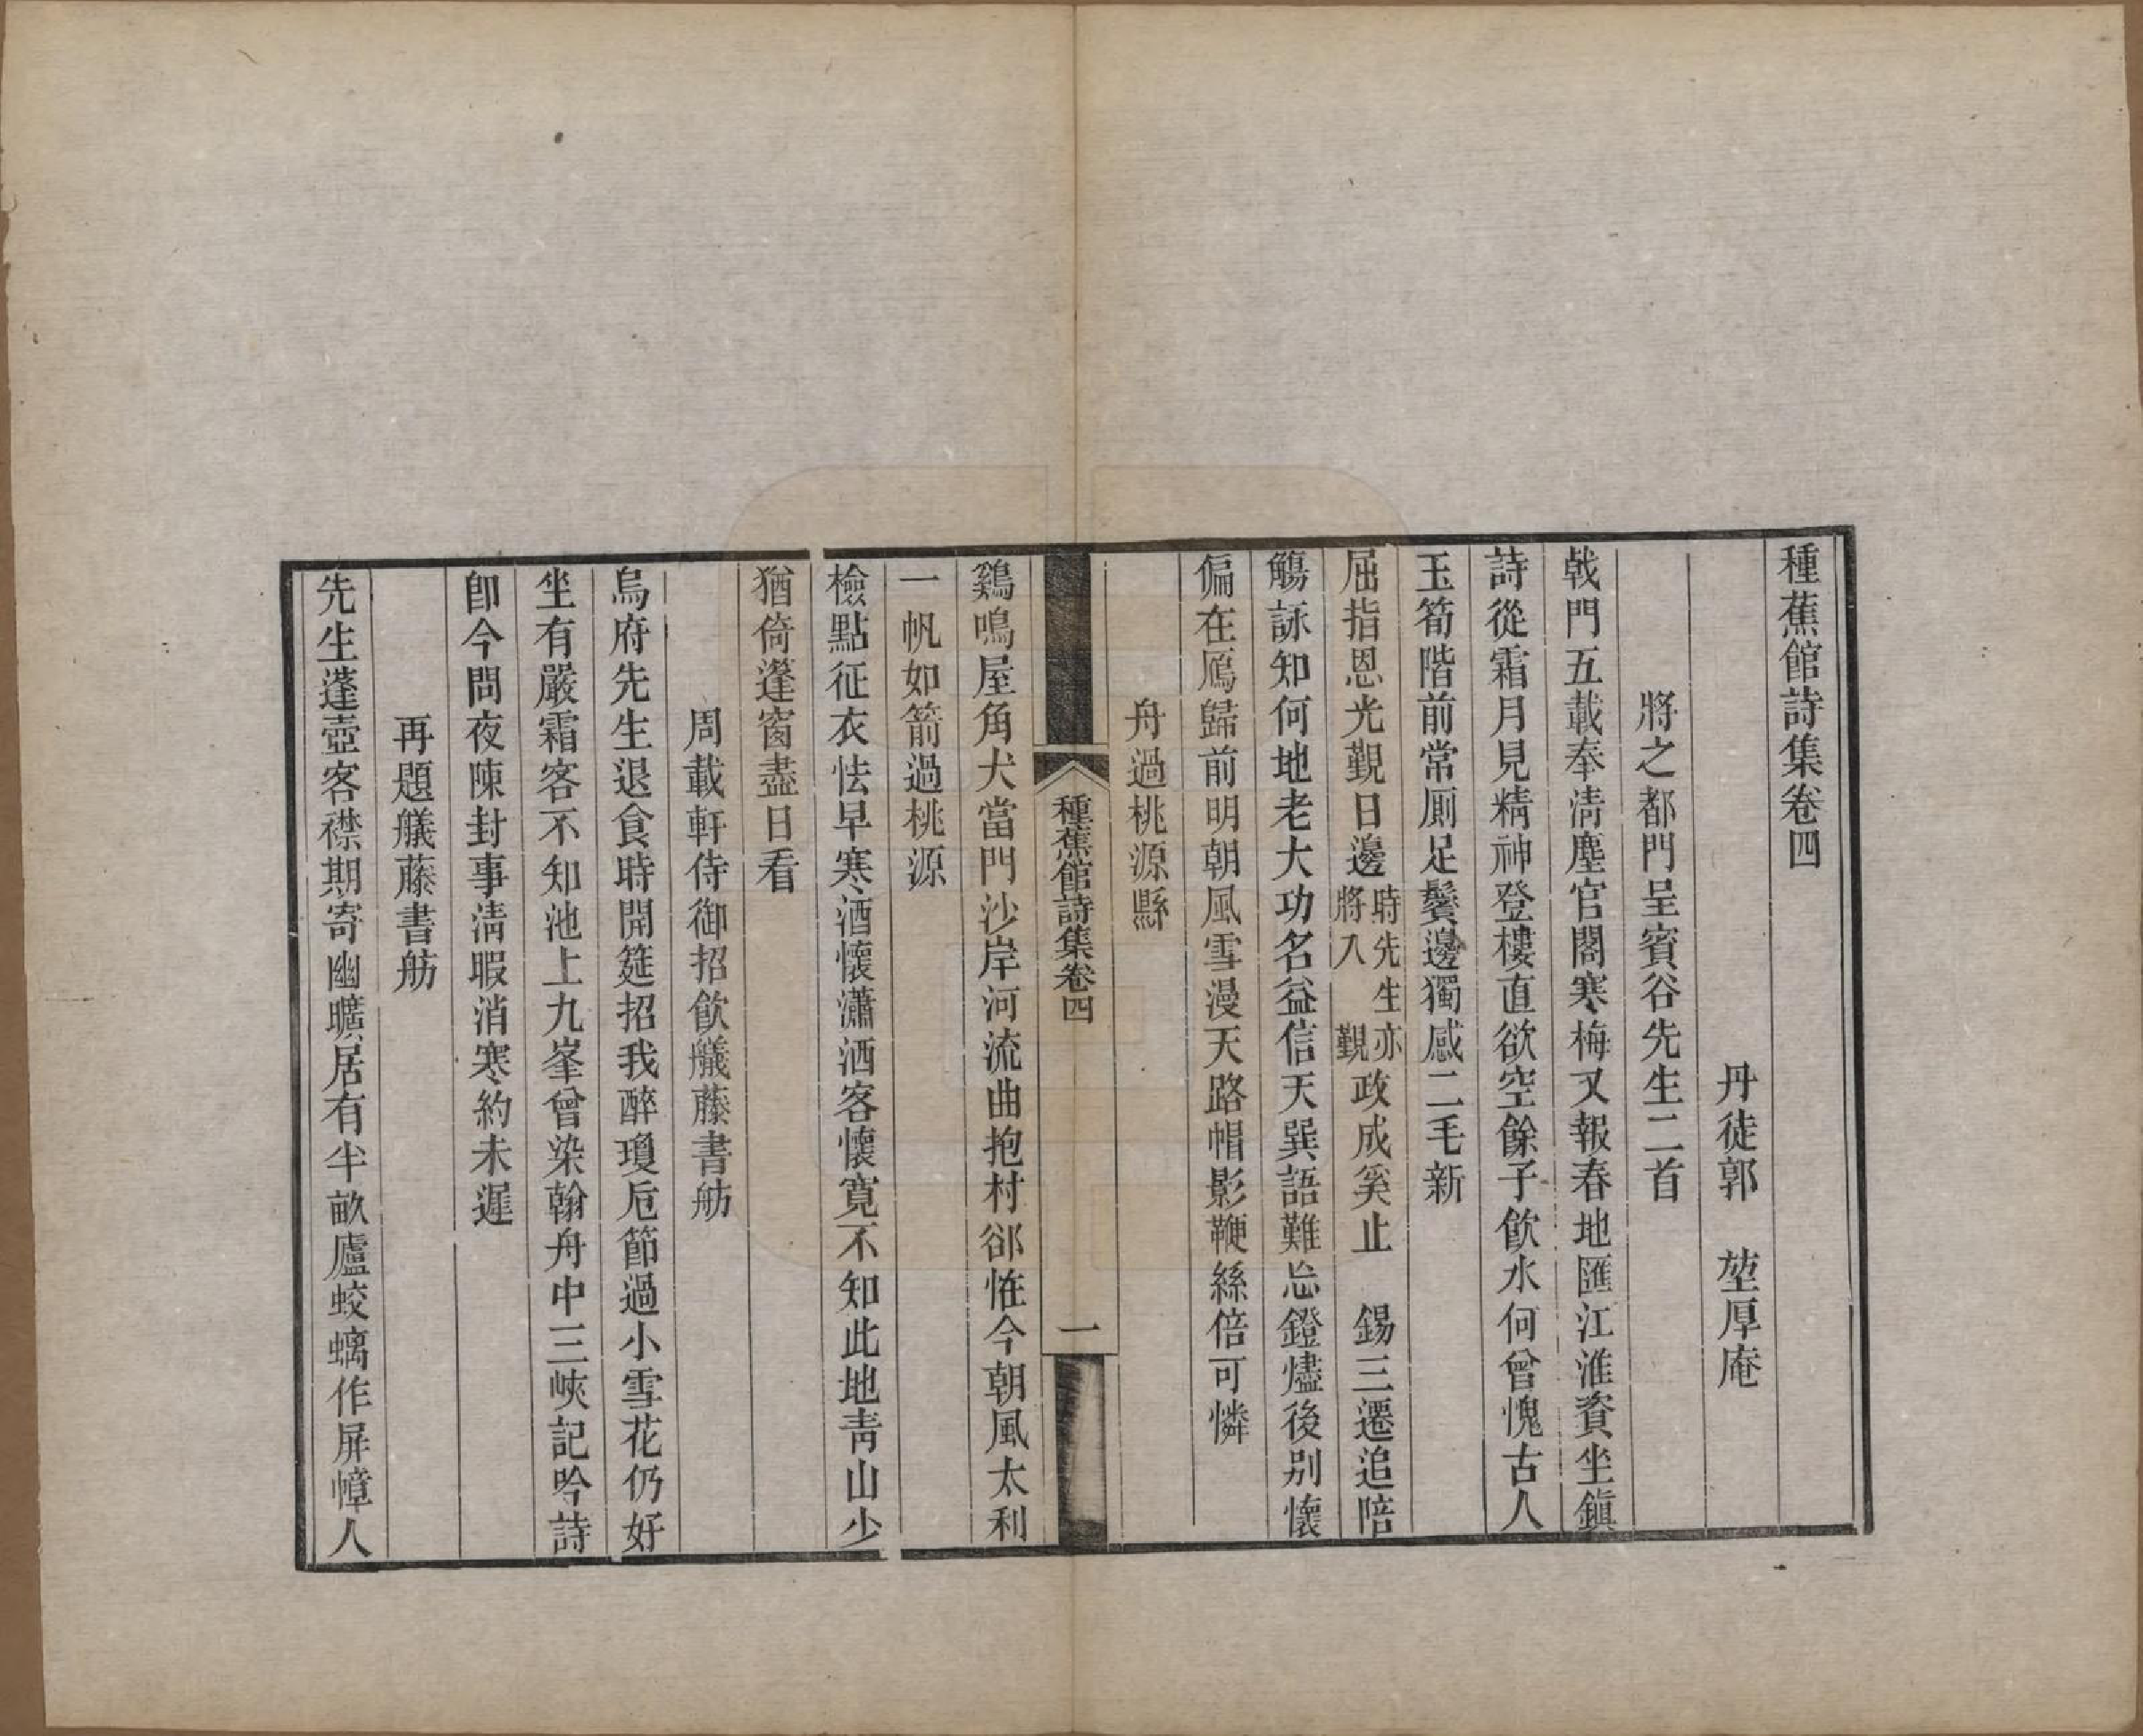 種蕉館詩集卷四
丹徒郭　堃厚庵
將之都門呈賓谷先生二首
戟門五載奉淸塵官閣寒梅又報春地匯江淮資坐鎭
詩從霜月見精神登樓直欲空餘子飲水何曾愧古人
玉筍階前常厠足鬢邊獨感二毛新
屈指恩光覲日邊時先生亦將入　覲政成奚止　錫三遷追陪
觴詠知何地老大功名益信天巽語難忘鐙燼後别懷
偏在鴈歸前明朝風雪漫天路帽影鞭絲倍可憐
舟過桃源縣
種蕉館詩集卷四
一
鷄鳴屋角犬當門沙岸河流曲抱村郤恠今朝風太利
一帆如箭過桃源
檢點征衣怯早寒酒懷瀟洒客懷寬不知此地靑山少
猶倚篷窗盡日看
周載軒侍御招飲艤藤書舫
烏府先生退食時開筵招我醉瓊卮節過小雪花仍好
坐有嚴霜客不知池上九峯曾染翰舟中三峽記吟詩
卽今問夜陳封事淸暇消寒約未遲
再題艤藤書舫
先生蓬壺客襟期寄幽曠居有半畝廬蛟螭作屏幛人